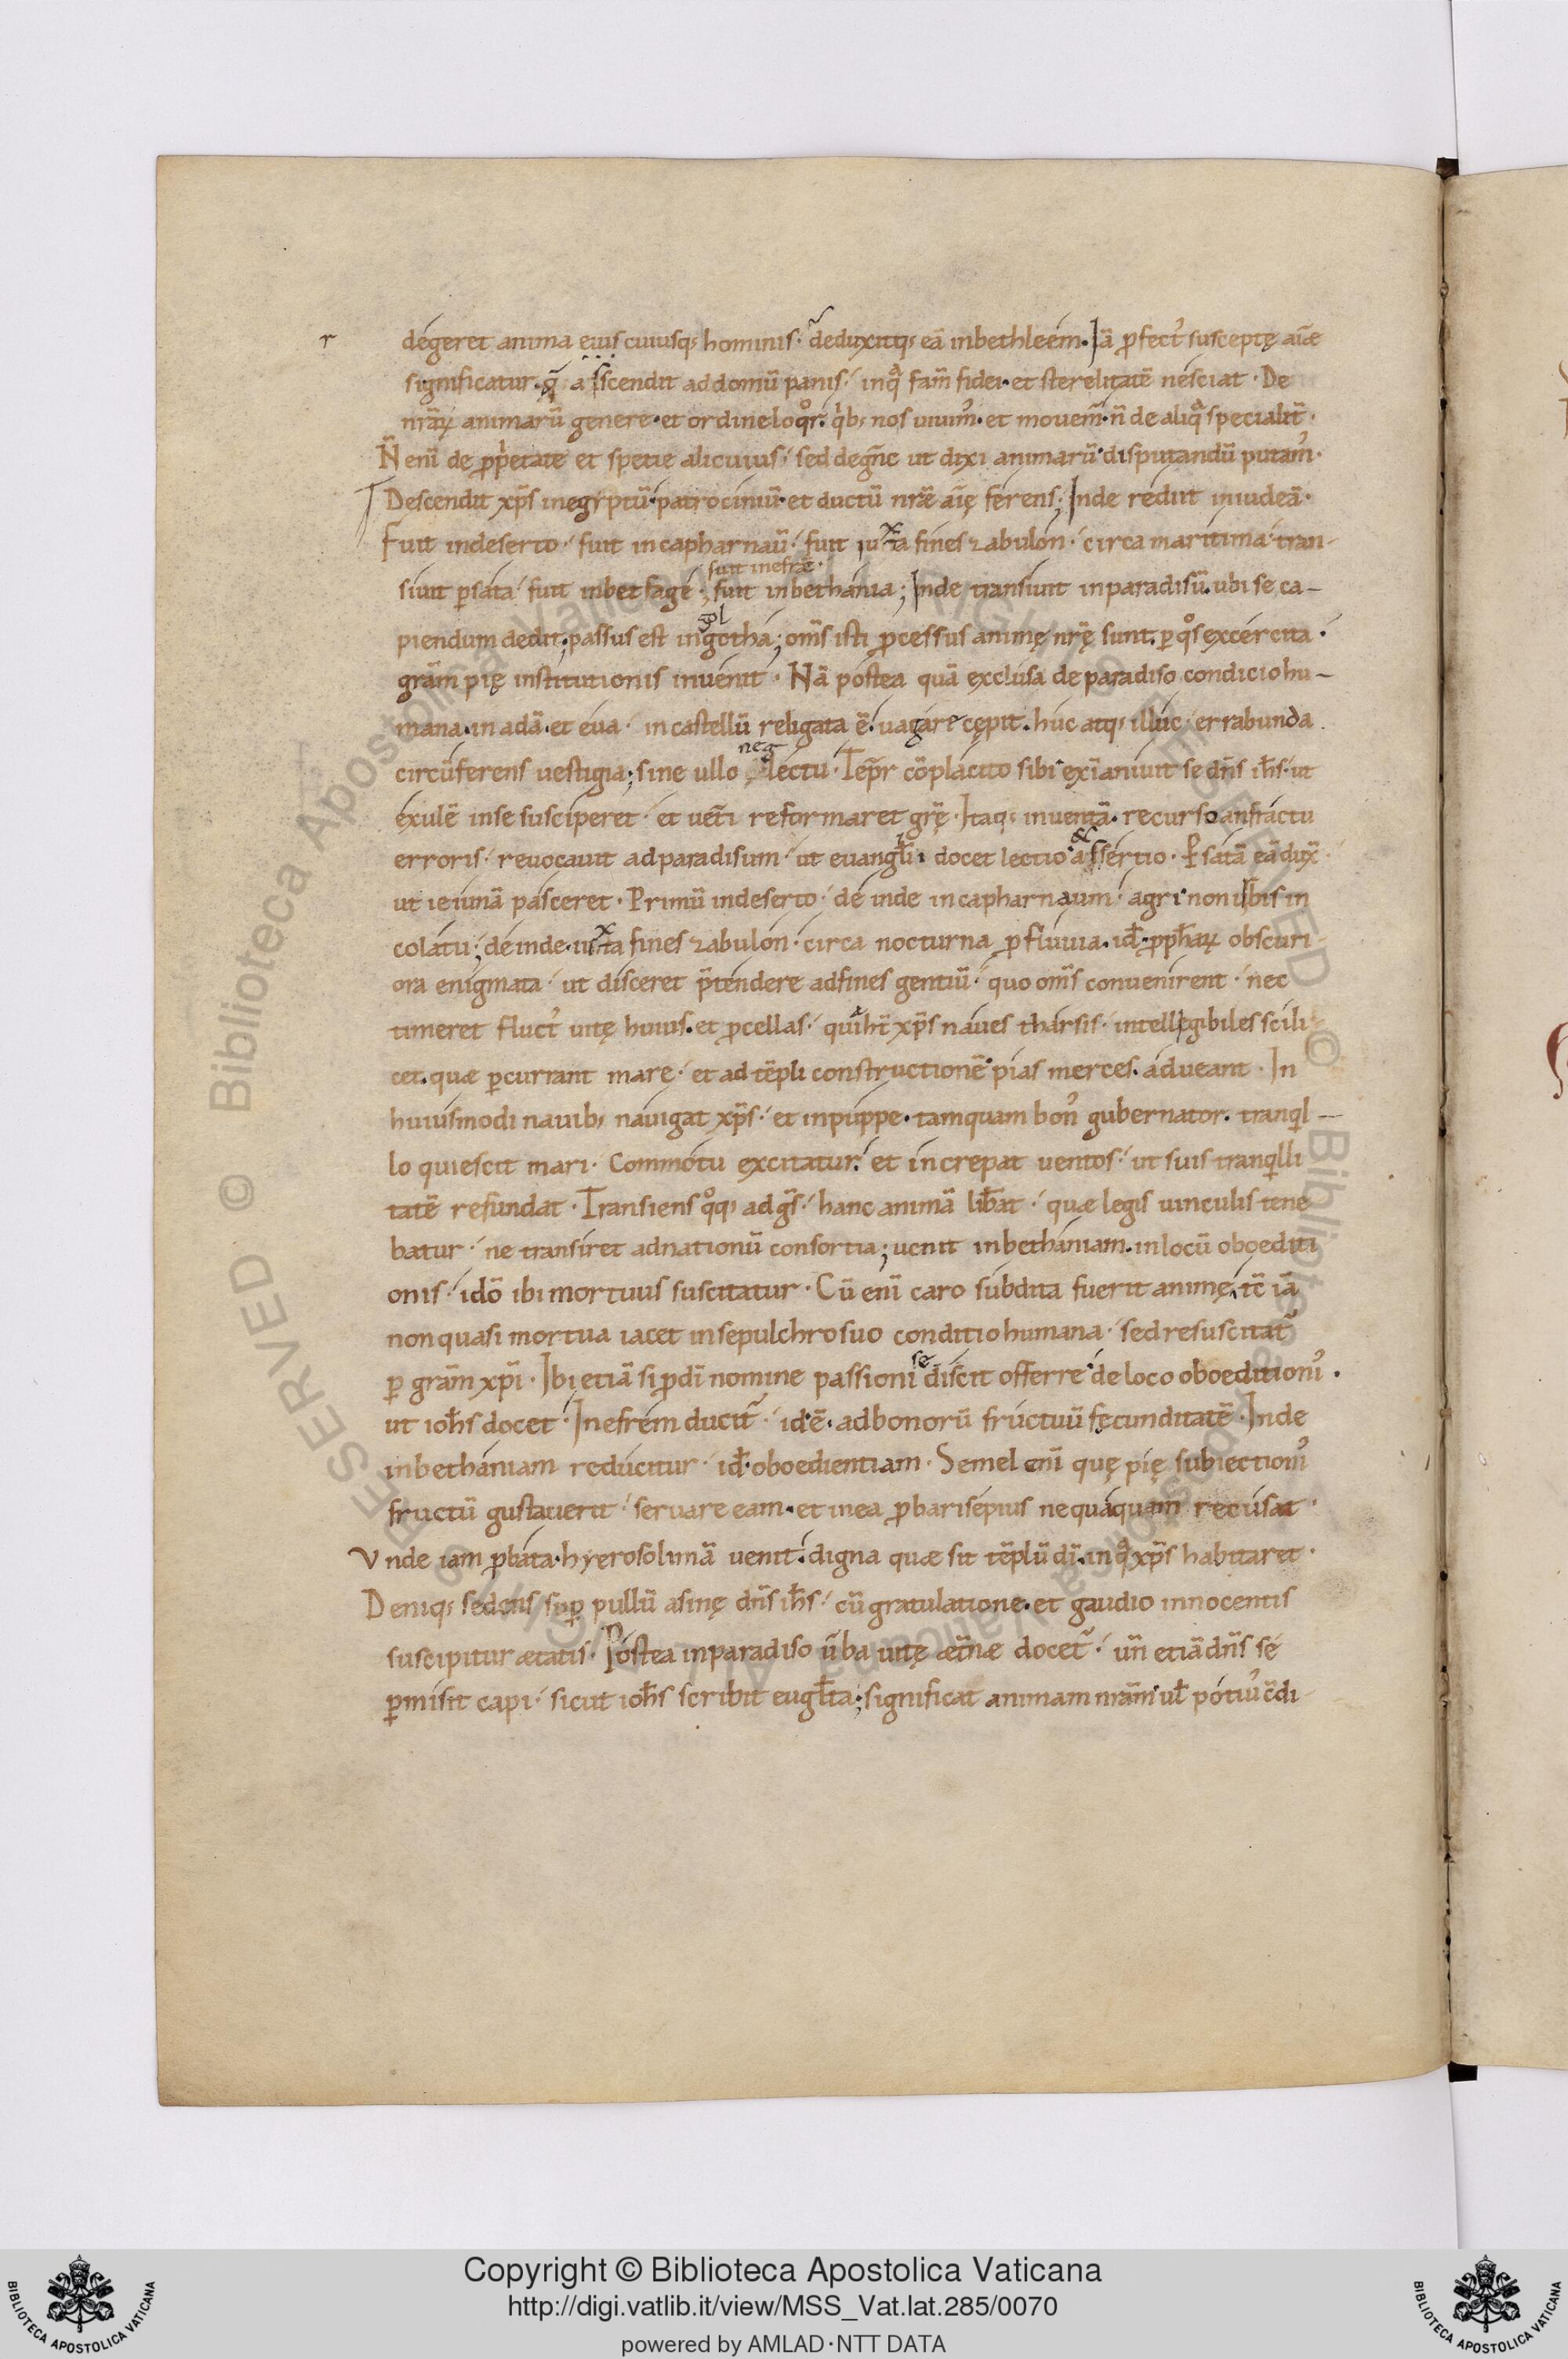 r
dégeret anima eius cuiusq; hominis· deduxitq; eā inbethleém· Iā ꝓfect᾿ susceptę aīæ
significatur· q̄ ascendit addomū panis· inqᵃ fam̄ fidei· et sterelitatē nésciat· De
nr̄aꝝ animarū genere· et ordine loqᵒr· qⁱb; nos uiuim᾿· et mouem̄· n̄ de aliqᵃ specialit̄·
N̄ enī de ꝓpⁱetate et spetie alicuius· sed degn̄e ut dixi animarū disputandū putam᾿·
Descendit xp̄s inegyptū· patrociniū· et ductū nr̄æ aīę ferens; Inde rédiit iniudeā·
Fuit indeserto· fuit incapharnaū· fuit iuxta fines zabulón· circa maritima· tran-
suit inefræ·
siuit ꝑsata· fuit inbetfagé·; fuit inbethánia; Inde transiuit inparadisū· ubi se ca-
gl
piendum dedit; passus est ingothá; om̄s isti ꝓcessus animę nr̄ę sunt· ꝑ qᵒs excércita·
grām pię institutionis inuénit· Nā póstea quā exclusa de paradiso condicio hu-
mana· in adā· et éua· in castellū religata ē· uagáre cępit· húc atq; illuc· errabunda
neg
circūferens uestigia; sine ullo léctu· Tēpr̄ cōplácito sibi exīaniuit se dn̄s ih̄s· ut
éxulē inse susciperet· et uet̄i reformaret grę̄· Itaq; inuentā· recurso anfráctu
&
erroris· reuocauit adparadisum· ut euangl̄ii docet lectio assértio· Ꝑ satā eā dux̄·
ut ieiunā pásceret· Primū indeserto· dé inde incapharnaum· agri non isbis in
colátu; dé inde· iuxta fines zabulón· circa nocturna ꝓfluuia· id· ꝓph̄aꝝ obscuri-
ora enigmata· ut disceret p̄téndere adfines gentiū· quo om̄s conuenírent· nec
timeret fluct᾿ uitę huius· et ꝓcellas· quia ht̄ xp̄s náues thársis· intellegibiles scili-
cet· quæ ꝑcurrant mare· et ad tēpli constructionē pias merces· ádueant· In
huiusmodi nauib; náuigat xp̄s· et inpúppe· tamquam bon᾿ gubernator· tranqⁱl-
lo quiescit mari· Commótu excitatur· et íncrepat uentos· ut suis tranqⁱlli
tatē refundat· Transiens qᵒq; ad gr̄s· hanc animā lib̄at· quæ legis uinculis tene
batur· ne transiret adnationū consortia; uenit inbethániam· inlocū oboediti
onis· idō ibi mortuus suscitatur· Cū enī caro súbdita fuerit animę, tc̄ iā
non quasi mortua iacet insepulchro suo conditio humana· sed resuscitat̄
se
ꝑ grām xp̄i· Ibi etiā si ꝓ dī nomine passioni discit offerre de loco oboeditioni᾿·
ut ioh̄s docet· Inefrém ducit̄· id ē· adbonorū frúctuū fęcunditatē· Inde
inbethániam redúcitur· id· oboedientiam· Semel enī quę pię subiectioni᾿
fructū gustauerit· seruare eam· et inea ꝓbari sępius nequáquam recúsat·
Vnde iam ꝓbáta· hyerosolimā uenit· digna quæ sit tēplū dī· inqᵃ xp̄s habitaret·
Deniq; sedens suꝑ pullū asinę dn̄s ih̄s· cū gratulatione· et gaudio innocentis
suscipitur ætatis· Póstea inparadiso ūba uitę æt̄næ docet̄· un̄ etiā dn̄s sé
ꝑmisit capi· sicut ioh̄s scribit eugl̄ta; significat animam nrām ul̄ pótiu᾿ c̄di-
Copyright © Biblioteca Apostolica Vaticana
http://digi.vatlib.it/view/MSS_Vat.lat.285/0070
powered by AMLAD·NTT DATA
BIBLIOTECA APOSTOLICA VATICANA
BIBLIOTECA APOSTOLICA VATICANA